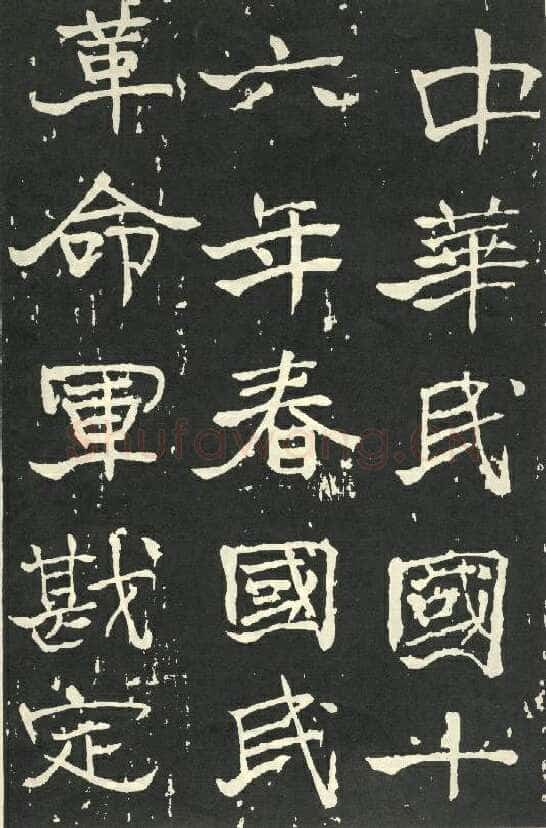 中華民國十
六年春國民
革命軍戡定
shufawang.cn